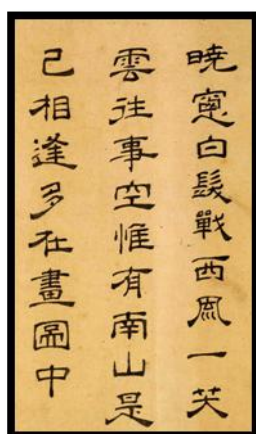 曉窻白髮戰西風一笑
雲往事空惟有南山是
己相逢多在畫圖中